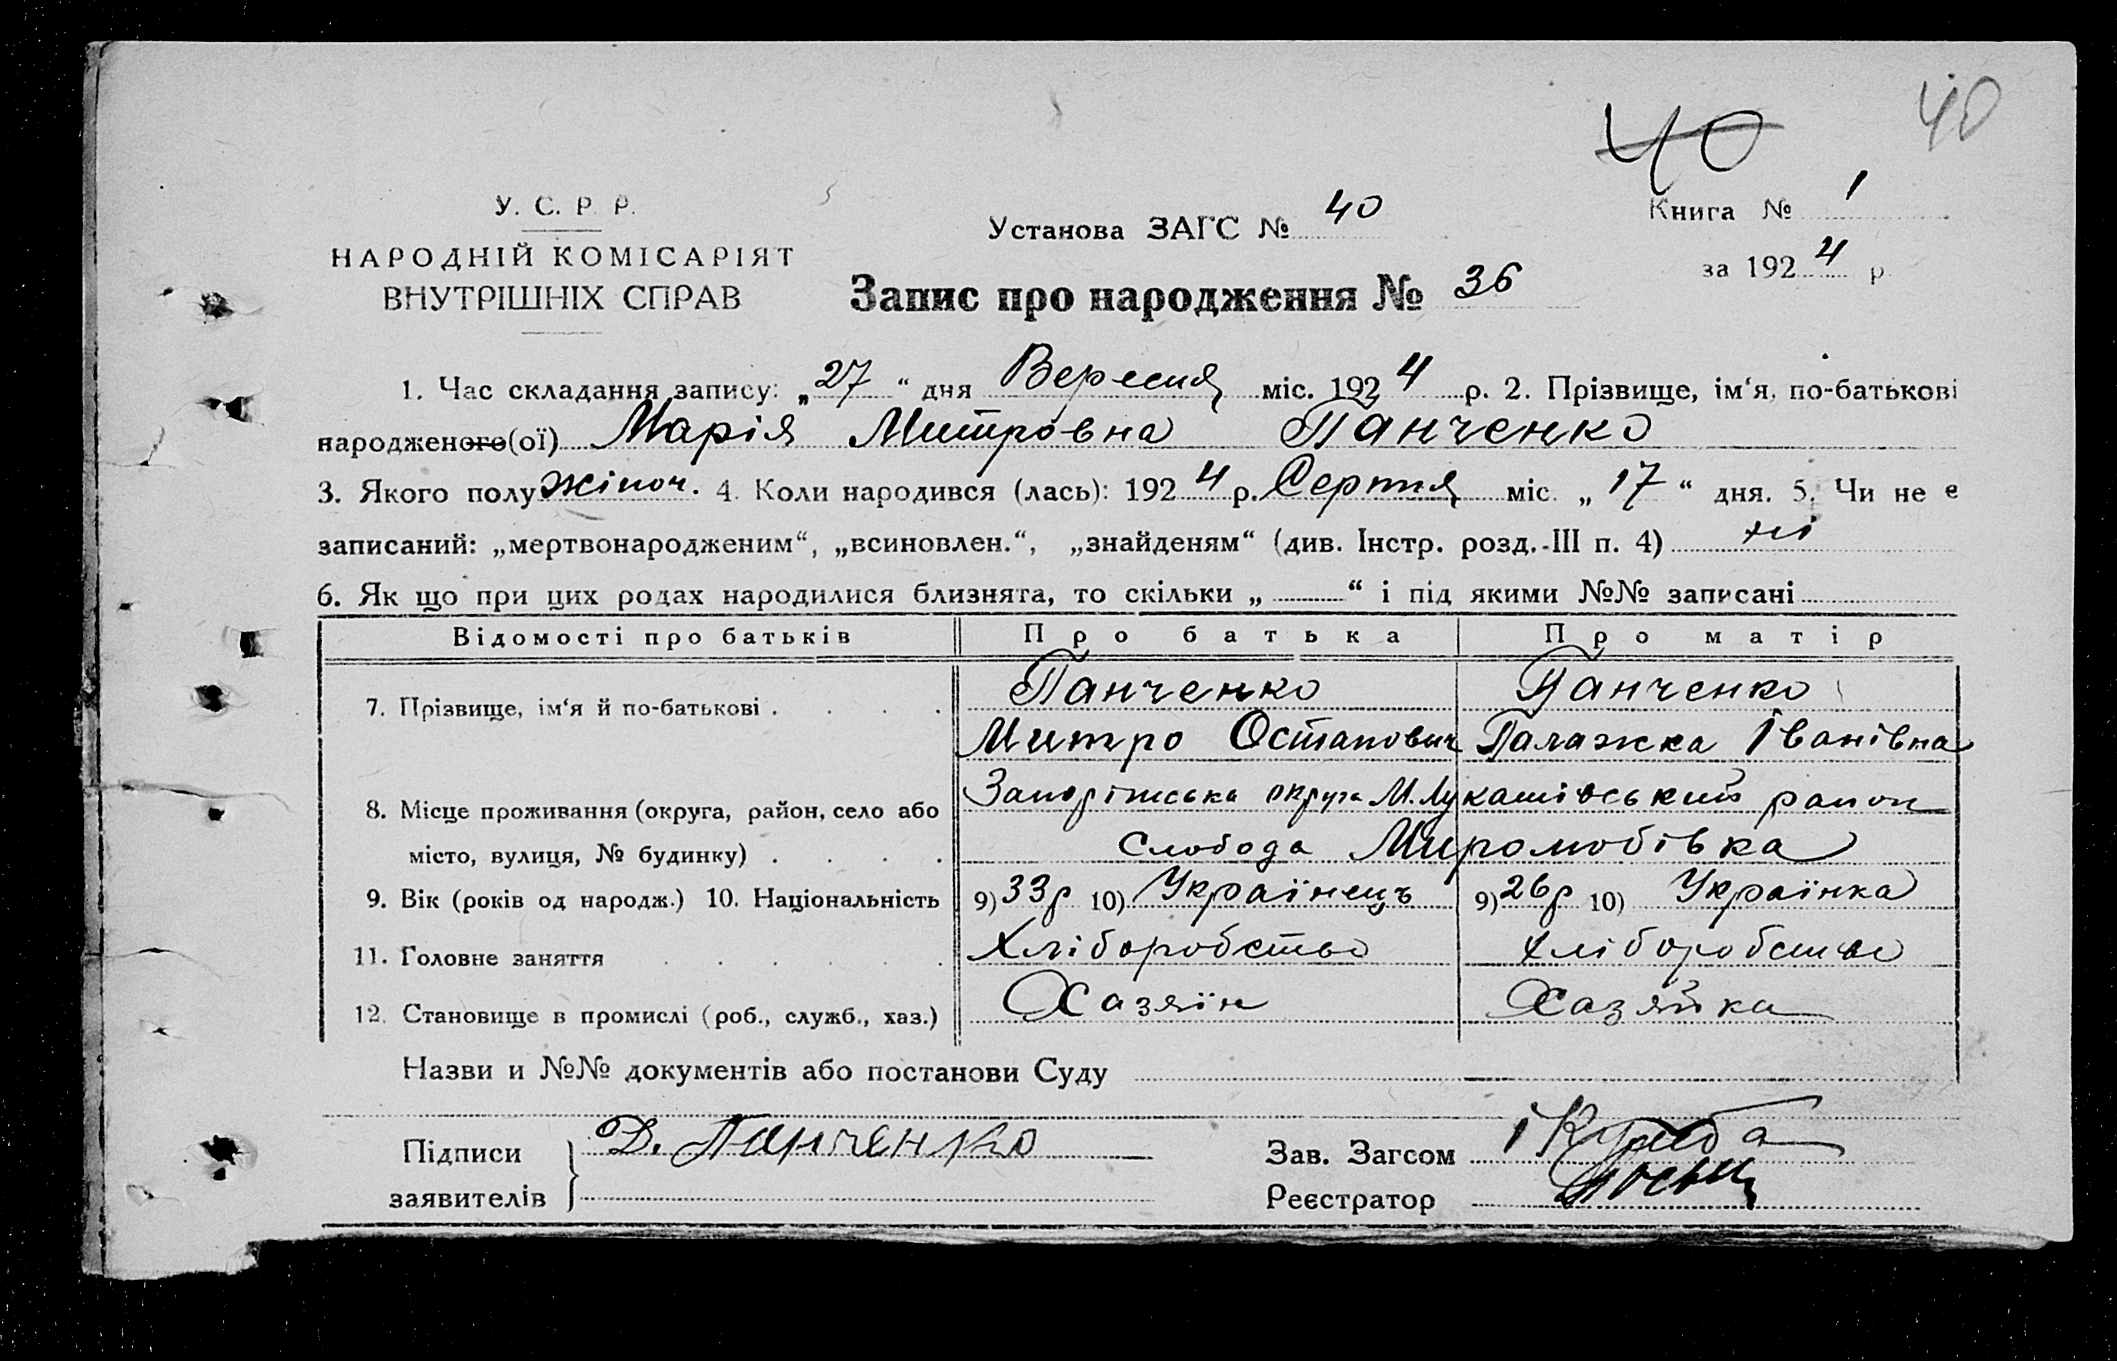 40
40
У. С. Р. Р.
НАРОДНІЙ КОМІСАРІЯТ
ВНУТРІШНІХ СПРАВ
Установа ЗАГС № 40
Книга № 1
за 1924 р.
Запис про народження № 36
1. Час складання запису: „27“ дня Вересня міс. 1924 р. 2. Прізвище, ім‘я, по-батькові
народженого(ої) Марія Митровна Панченко
3. Якого полу жіноч. 4. Коли народився (лась): 1924 р. Серпня міс. „17“ дня. 5. Чи не є
записаний: „мертвонародженим“, „всиновлен.“, „знайденям“ (див. Інстр. розд.-III п. 4) ні
6. Як що при цих родах народилися близнята, то скільки „ “ і під якими №№ записані
Відомості про батьків Про батька Про матір
7. Прізвище, ім‘я й по-батькові . . . . Панченко Панченко
Митро Остапович Палажка Іванівна
8. Місце проживання (округа, район, село або Запоріжська округа М. Лукашівський район
місто, вулиця, № будинку) . . . . Слобода Миролюбівка
9. Вік (років од народж.) 10. Національність 9) 33 р 10) Українець 9) 26 р 10) Українка
11. Головне заняття . . . . . . Хліборобство Хліборобство
12. Становище в промислі (роб., служб., хаз.) Хазяїн Хазяйка
Назви и №№ документів або постанови Суду
Підписи Д. Панченко Зав. Загсом
заявителів Реєстратор